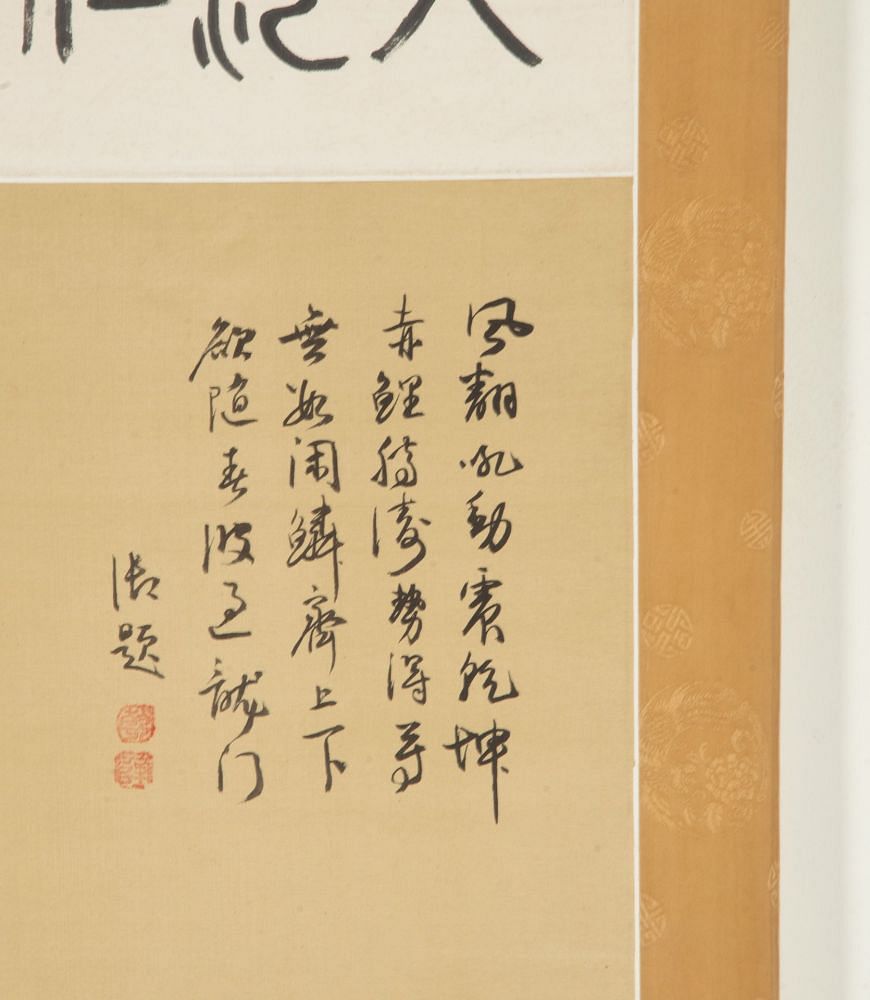 風翻吼動震乾坤
赤鯉騰濤勢得尊
無數閑鱗齊上下
欲隨春波過龍门
題